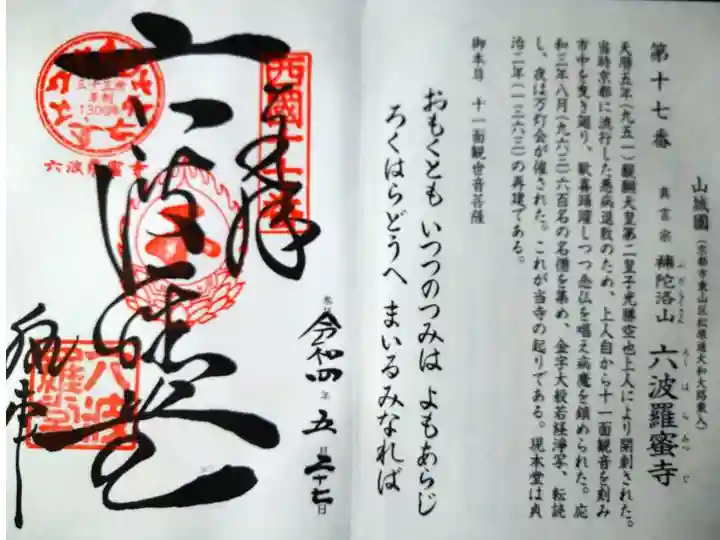 山城國(京都市東山区松原通大和大路東入)
第十七番 真言宗 補陀洛山 六波羅蜜寺
ふだらくさん ろくはらみつじ
天暦五年(九五一)醍醐天皇第二皇子光勝空也上人により開創された。
当時京都に流行した悪病退散のため、上人自から十一面観音を刻み
市中を曳き廻り、歓喜踊躍しつつ念仏を唱え病魔を鎮められた。応
和三年八月(九六三)六百名の名僧を集め、金字大般若経浄写、転読
し、夜は万灯会が催された。これが当寺の起りである。現本堂は貞
治二年(一三六三)の再建である。
御本尊 十一面観世音菩薩
おもくとも いつつのつみは よもあらじ
ろくはらどうへ まいるみなれば
西國十七番
奉拝
令和四年 五月 二十七日
六波羅堂
三十三所
草創
1300年
六波羅蜜寺